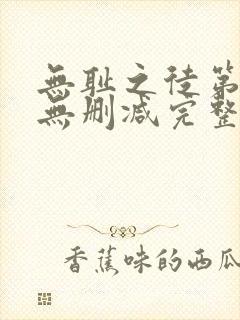 無耻之徒第
無删减完整
香蕉味的西瓜